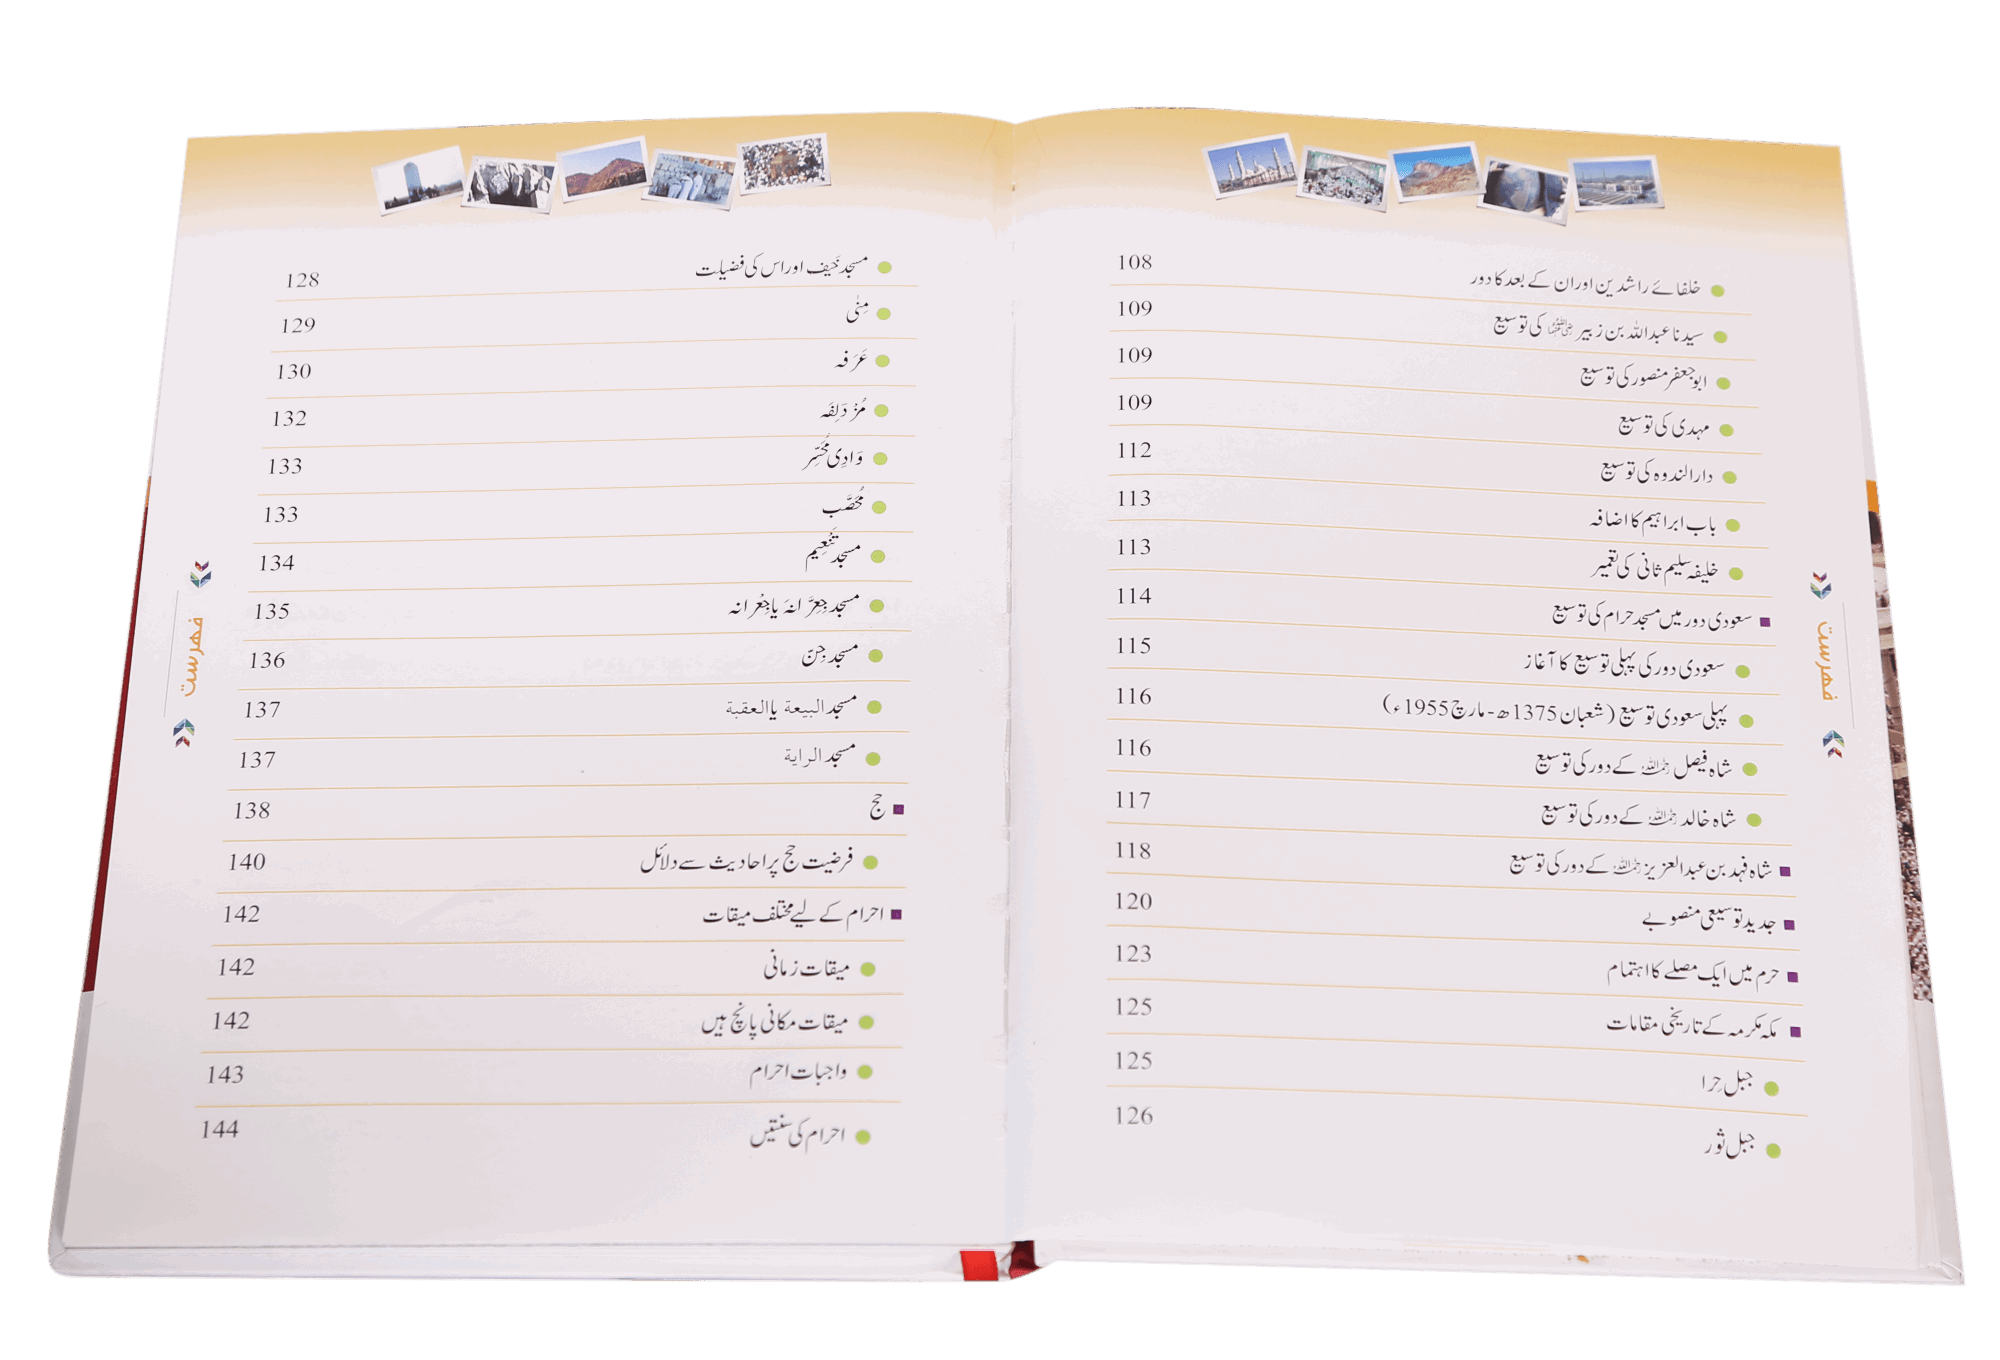 خلفائے راشدین اور ان کے بعد کا دور 108
سیدنا عبداللہ بن زبیر رضی اللہ عنہما کی توسیع 109
ابو جعفر منصور کی توسیع 109
مہدی کی توسیع 109
دارالندوہ کی توسیع 112
باب ابراہیم کا اضافہ 113
خلیفہ سلیم ثانی کی تعمیر 113
سعودی دور میں مسجد حرام کی توسیع 114
سعودی دور کی پہلی توسیع کا آغاز 115
پہلی سعودی توسیع (شعبان 1375ھ - مارچ 1955ء) 116
شاہ فیصل رحمہ اللہ کے دور کی توسیع 116
شاہ خالد رحمہ اللہ کے دور کی توسیع 117
شاہ فہد بن عبدالعزیز رحمہ اللہ کے دور کی توسیع 118
جدید توسیعی منصوبے 120
حرم میں ایک مصلے کا اہتمام 123
مکہ مکرمہ کے تاریخی مقامات 125
جبل حِرا 125
جبل ثور 126
فہرست
مسجد خَیف اور اس کی فضیلت 128
مِنٰی 129
عَرَفہ 130
مُزْدَلِفَہ 132
وَادِی مُحَسِّر 133
مُحَصَّب 133
مسجد تَنْعِیم 134
مسجد جِعِرَّانَہ یا جِعْرانہ 135
مسجد جِنّ 136
مسجد البيعة یا العقبة 137
مسجد الراية 137
حج 138
فرضیت حج پر احادیث سے دلائل 140
احرام کے لیے مختلف میقات 142
میقات زمانی 142
میقات مکانی پانچ ہیں 142
واجبات احرام 143
احرام کی سنتیں 144
فہرست